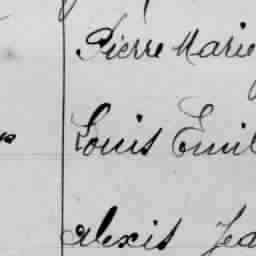 Pierre Marie
Louis Emil
Alexis Jea